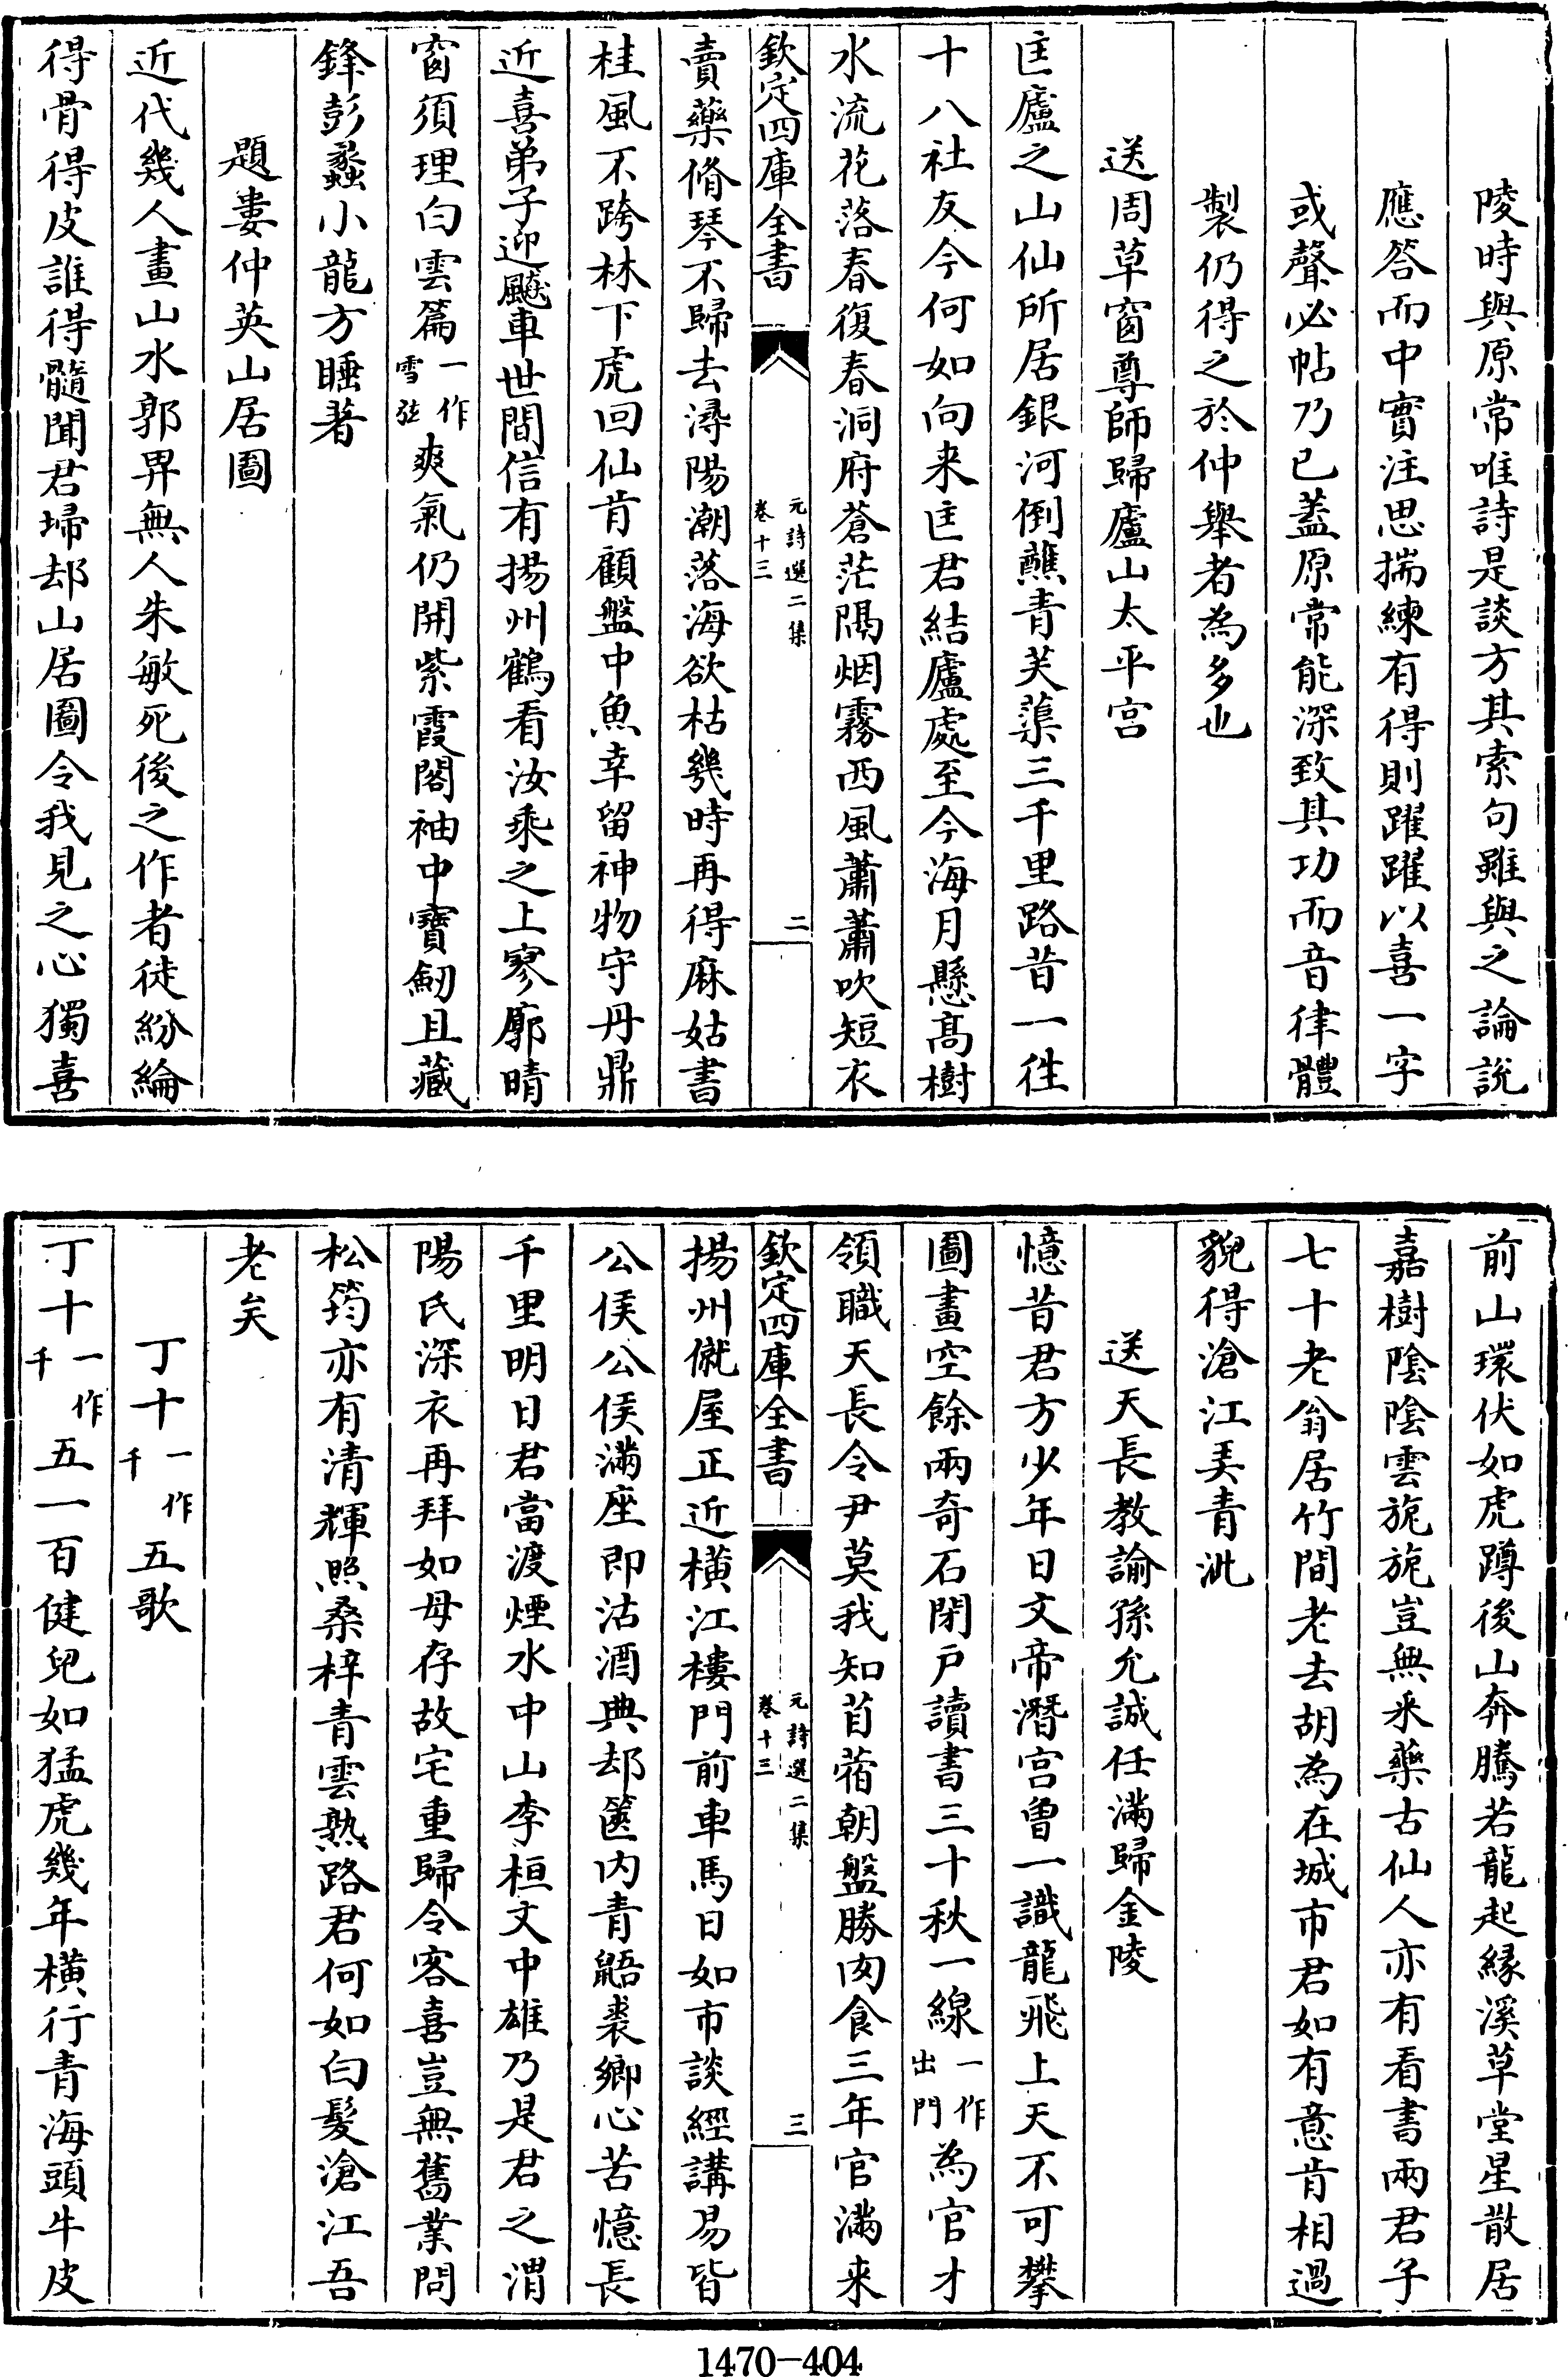 陵時與原常唯詩是談方其索句雖與之論說
應答而中實注思揣練有得則躍躍以喜一字
或聲必帖乃已蓋原常能深致其功而音律體
製仍得之於仲舉者為多也
送周草窗尊師歸廬山太平宮
匡廬之山仙所居銀河倒蘸青芙蕖三千里路昔一往
十八社友今何如向来匡君結廬處至今海月懸髙樹
水流花落春復春洞府蒼茫隔烟霧西風蕭蕭吹短衣
欽定四庫全書
元詩選二集
卷十三
二
賣藥脩琴不歸去潯陽潮落海欲枯幾時再得麻姑書
桂風不跨林下虎回仙肯顧盤中魚幸留神物守丹鼎
近喜弟子迎飇車世間信有揚州鶴看汝乘之上寥廓晴
窗須理白雲篇一作雪弦爽氣仍開紫霞閣袖中寶劒且藏
鋒彭蠡小龍方睡著
題婁仲英山居圖
近代幾人畫山水郭畀無人朱敏死後之作者徒紛綸
得骨得皮誰得髓聞君埽却山居圖令我見之心獨喜
前山環伏如虎蹲後山奔騰若龍起緣溪草堂星散居
嘉樹陰陰雲旎旎豈無采藥古仙人亦有看書兩君子
七十老翁居竹間老去胡為在城市君如有意肯相過
貌得滄江美青泚
送天長教諭孫允誠任滿歸金陵
憶昔君方少年日文帝潛宮曽一識龍飛上天不可攀
圖畫空餘兩奇石閉戶讀書三十秋一線一作出門為官才
領職天長令尹莫我知苜蓿朝盤勝肉食三年官滿来
欽定四庫全書
元詩選二集
卷十三
三
揚州僦屋正近横江樓門前車馬日如市談經講易皆
公侯公侯滿座即沽酒典却篋内青鼯裘鄉心苦憶長
千里明日君當渡煙水中山李桓文中雄乃是君之渭
陽氏深衣再拜如母存故宅重歸令客喜豈無舊業問
松筠亦有清輝照桑梓青雲熟路君何如白髮滄江吾
老矣
丁十一作千五歌
丁十一作千五一百健兒如猛虎幾年横行青海頭牛皮
1470-404